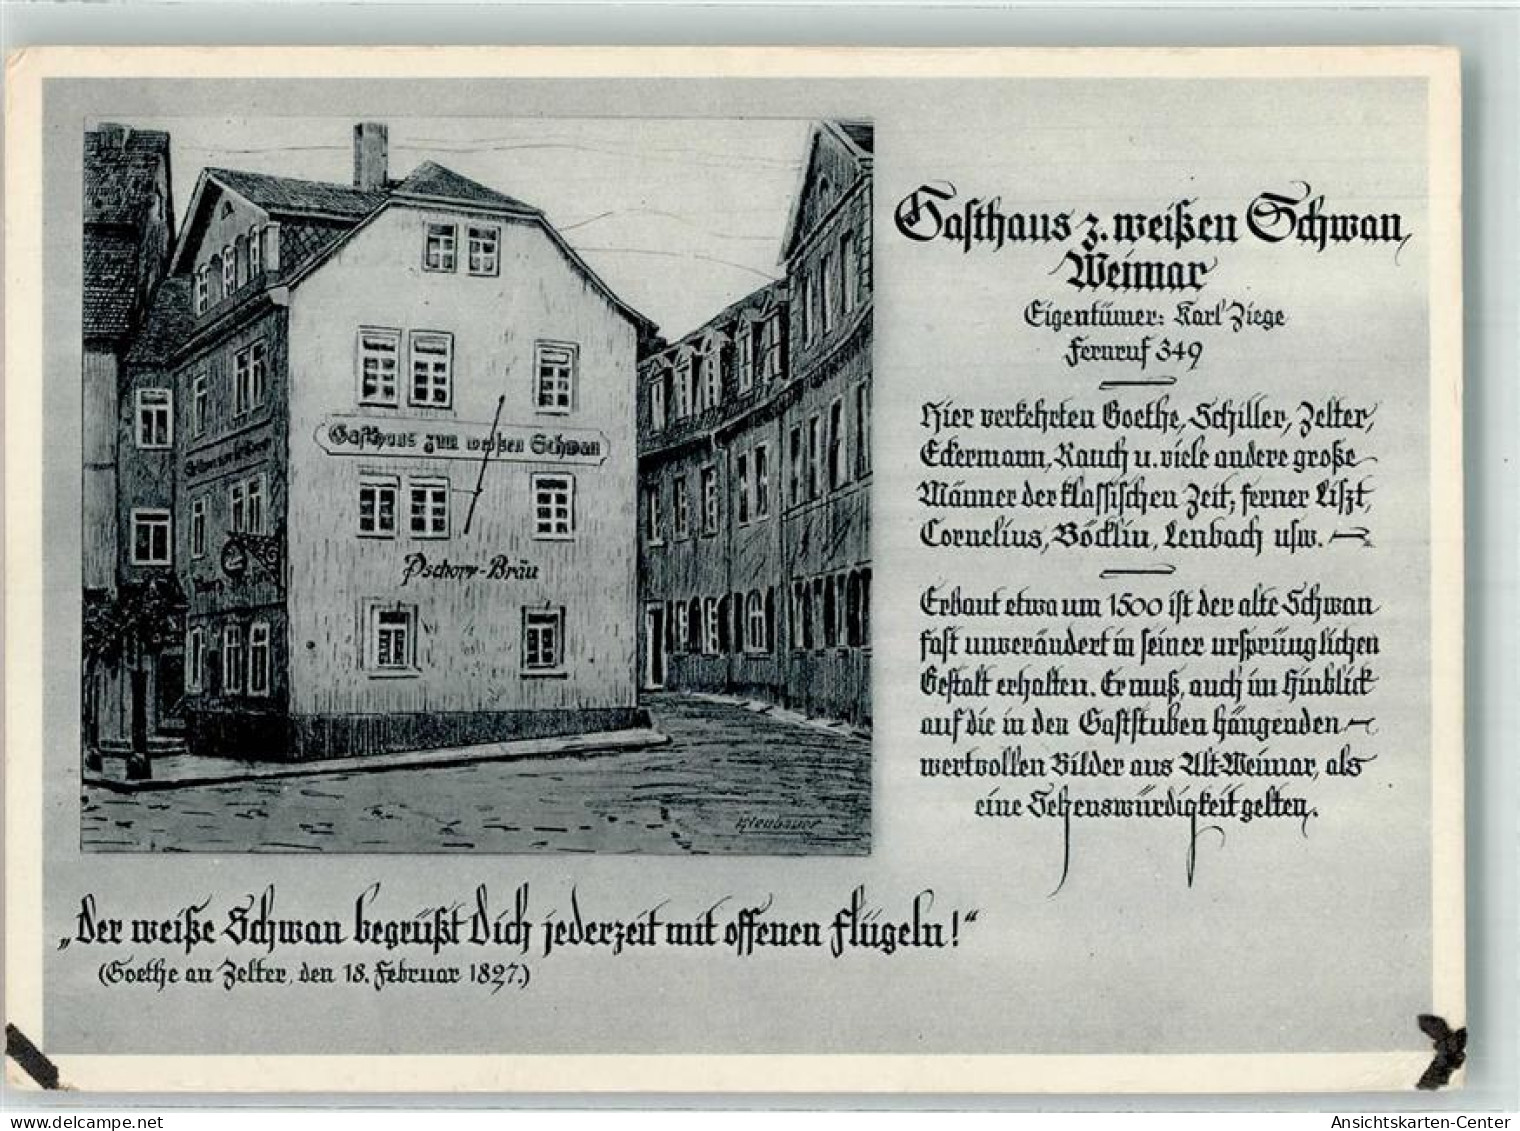 Gasthaus z. weißen Schwan,
Weimar
Eigentümer: Karl Ziege
Fernruf 349
Hier verkehrten Goethe, Schiller, Zelter,
Eckermann, Rauch u. viele andere große
Männer der klassischen Zeit, ferner Liszt,
Cornelius, Böcklin, Lenbach usw.
Erbaut etwa um 1500 ist der alte Schwan
fast unverändert in seiner ursprünglichen
Gestalt erhalten. Er muß, auch im Hinblick
auf die in den Gaststuben hängenden
wertvollen Bilder aus Alt-Weimar, als
eine Sehenswürdigkeit gelten.
Gasthaus zum weißen Schwan
Pschorr-Bräu
„Der weiße Schwan begrüßt Dich jederzeit mit offenen Flügeln!“
(Goethe an Zelter, den 18. Februar 1827.)
Ansichtskarten-Center